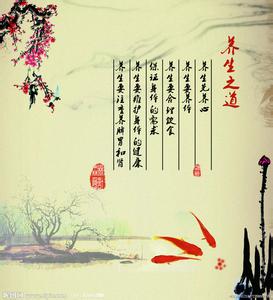 养生之道
养生先养心
养生要养
养生要合理饮食
保证身体的需求
养生要维护身体的健康
养生要注意养脾胃和肾